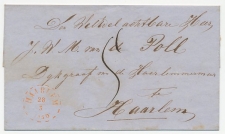 Den Weledelachtbaren Heer,
J. W. M. van de Poll
Dijkgraaf van den Haarlemmermeer
te
Haarlem
5